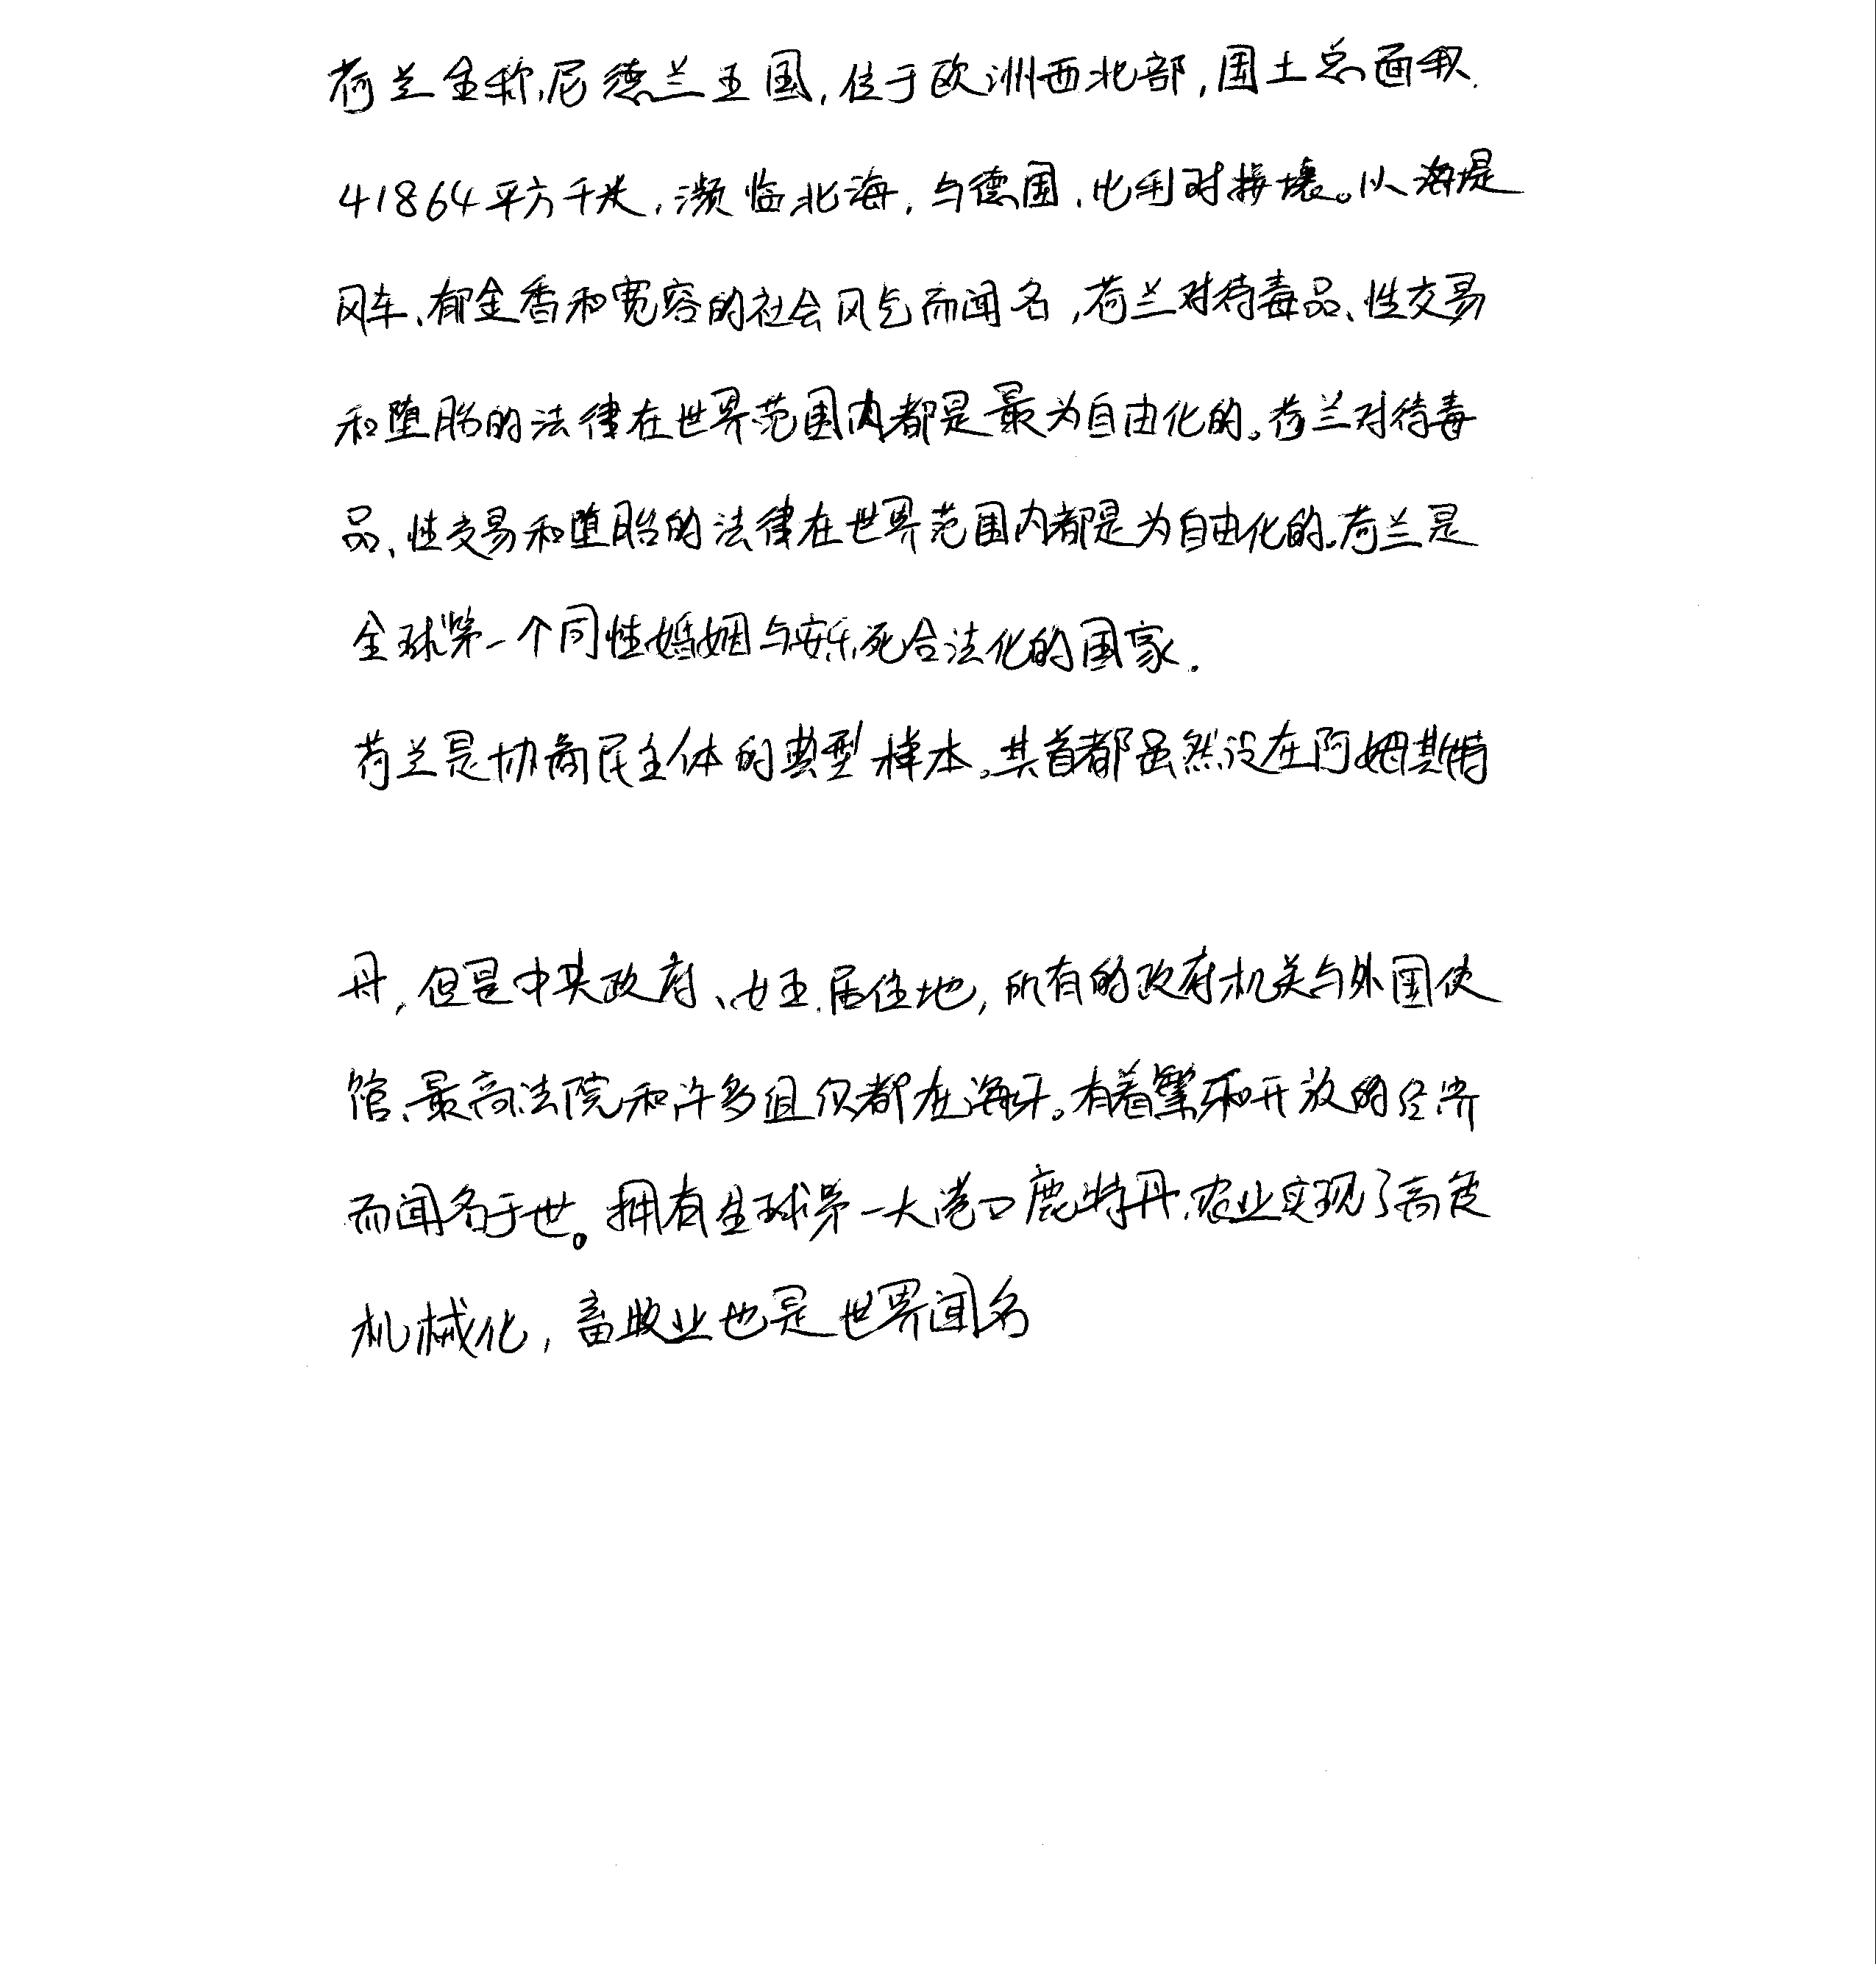 荷兰全称尼德兰王国,位于欧洲西北部,国土总面积.
41864平方千米,濒临北海,与德国、比利时接壤。以海堤
风车、郁金香和宽容的社会风气而闻名,荷兰对待毒品、性交易
和堕胎的法律在世界范围内都是最为自由化的。荷兰对待毒
品、性交易和堕胎的法律在世界范围内都是为自由化的。荷兰是
全球第一个同性婚姻与安乐死合法化的国家.
荷兰是协商民主体的典型样本。其首都虽然设在阿姆斯特
丹,但是中央政府、女王居住地,所有的政府机关与外国使
馆、最高法院和许多组织都在海牙。有着繁荣和开放的经济
而闻名于世。拥有全球第一大港口鹿特丹,农业实现了高度
机械化,畜牧业也是世界闻名